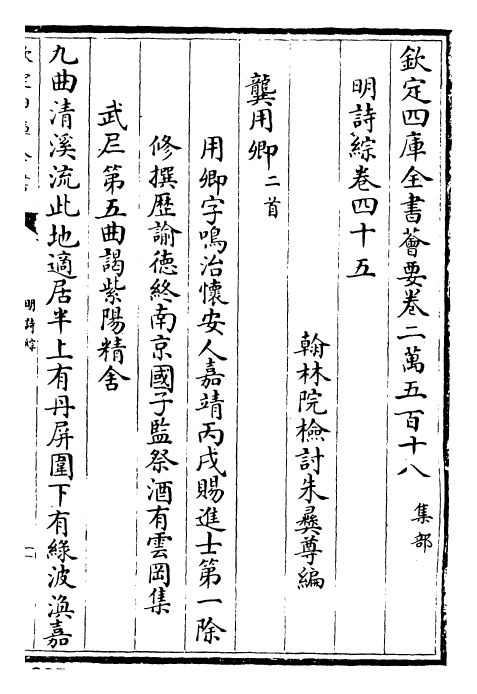 欽定四庫全書薈要卷二萬五百十八
集部
明詩綜卷四十五
翰林院檢討朱彝尊編
龔用卿二首
用卿字鳴治懷安人嘉靖丙戌賜進士第一除
修撰歴諭德終南京國子監祭酒有雲岡集
武𡰥第五曲謁紫陽精舍
九曲清溪流此地適居半上有丹屏圍下有綠波渙嘉
明詩綜